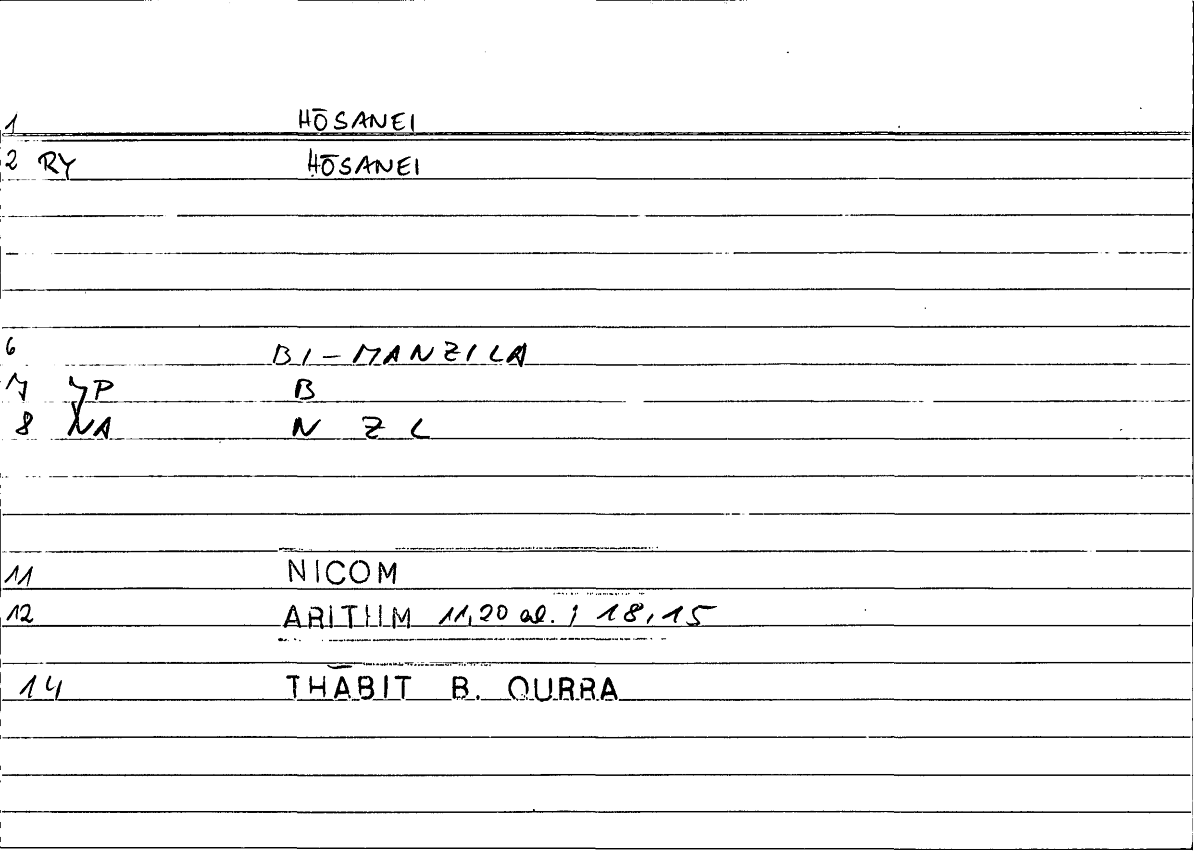 1 HŌSANEI
2 RY HŌSANEI
6 BI-MANZILA
7 JP B
8 NA N Z L
11 NICOM
12 ARITHM 11,20 al. ; 18,15
14 THĀBIT B. QURRA